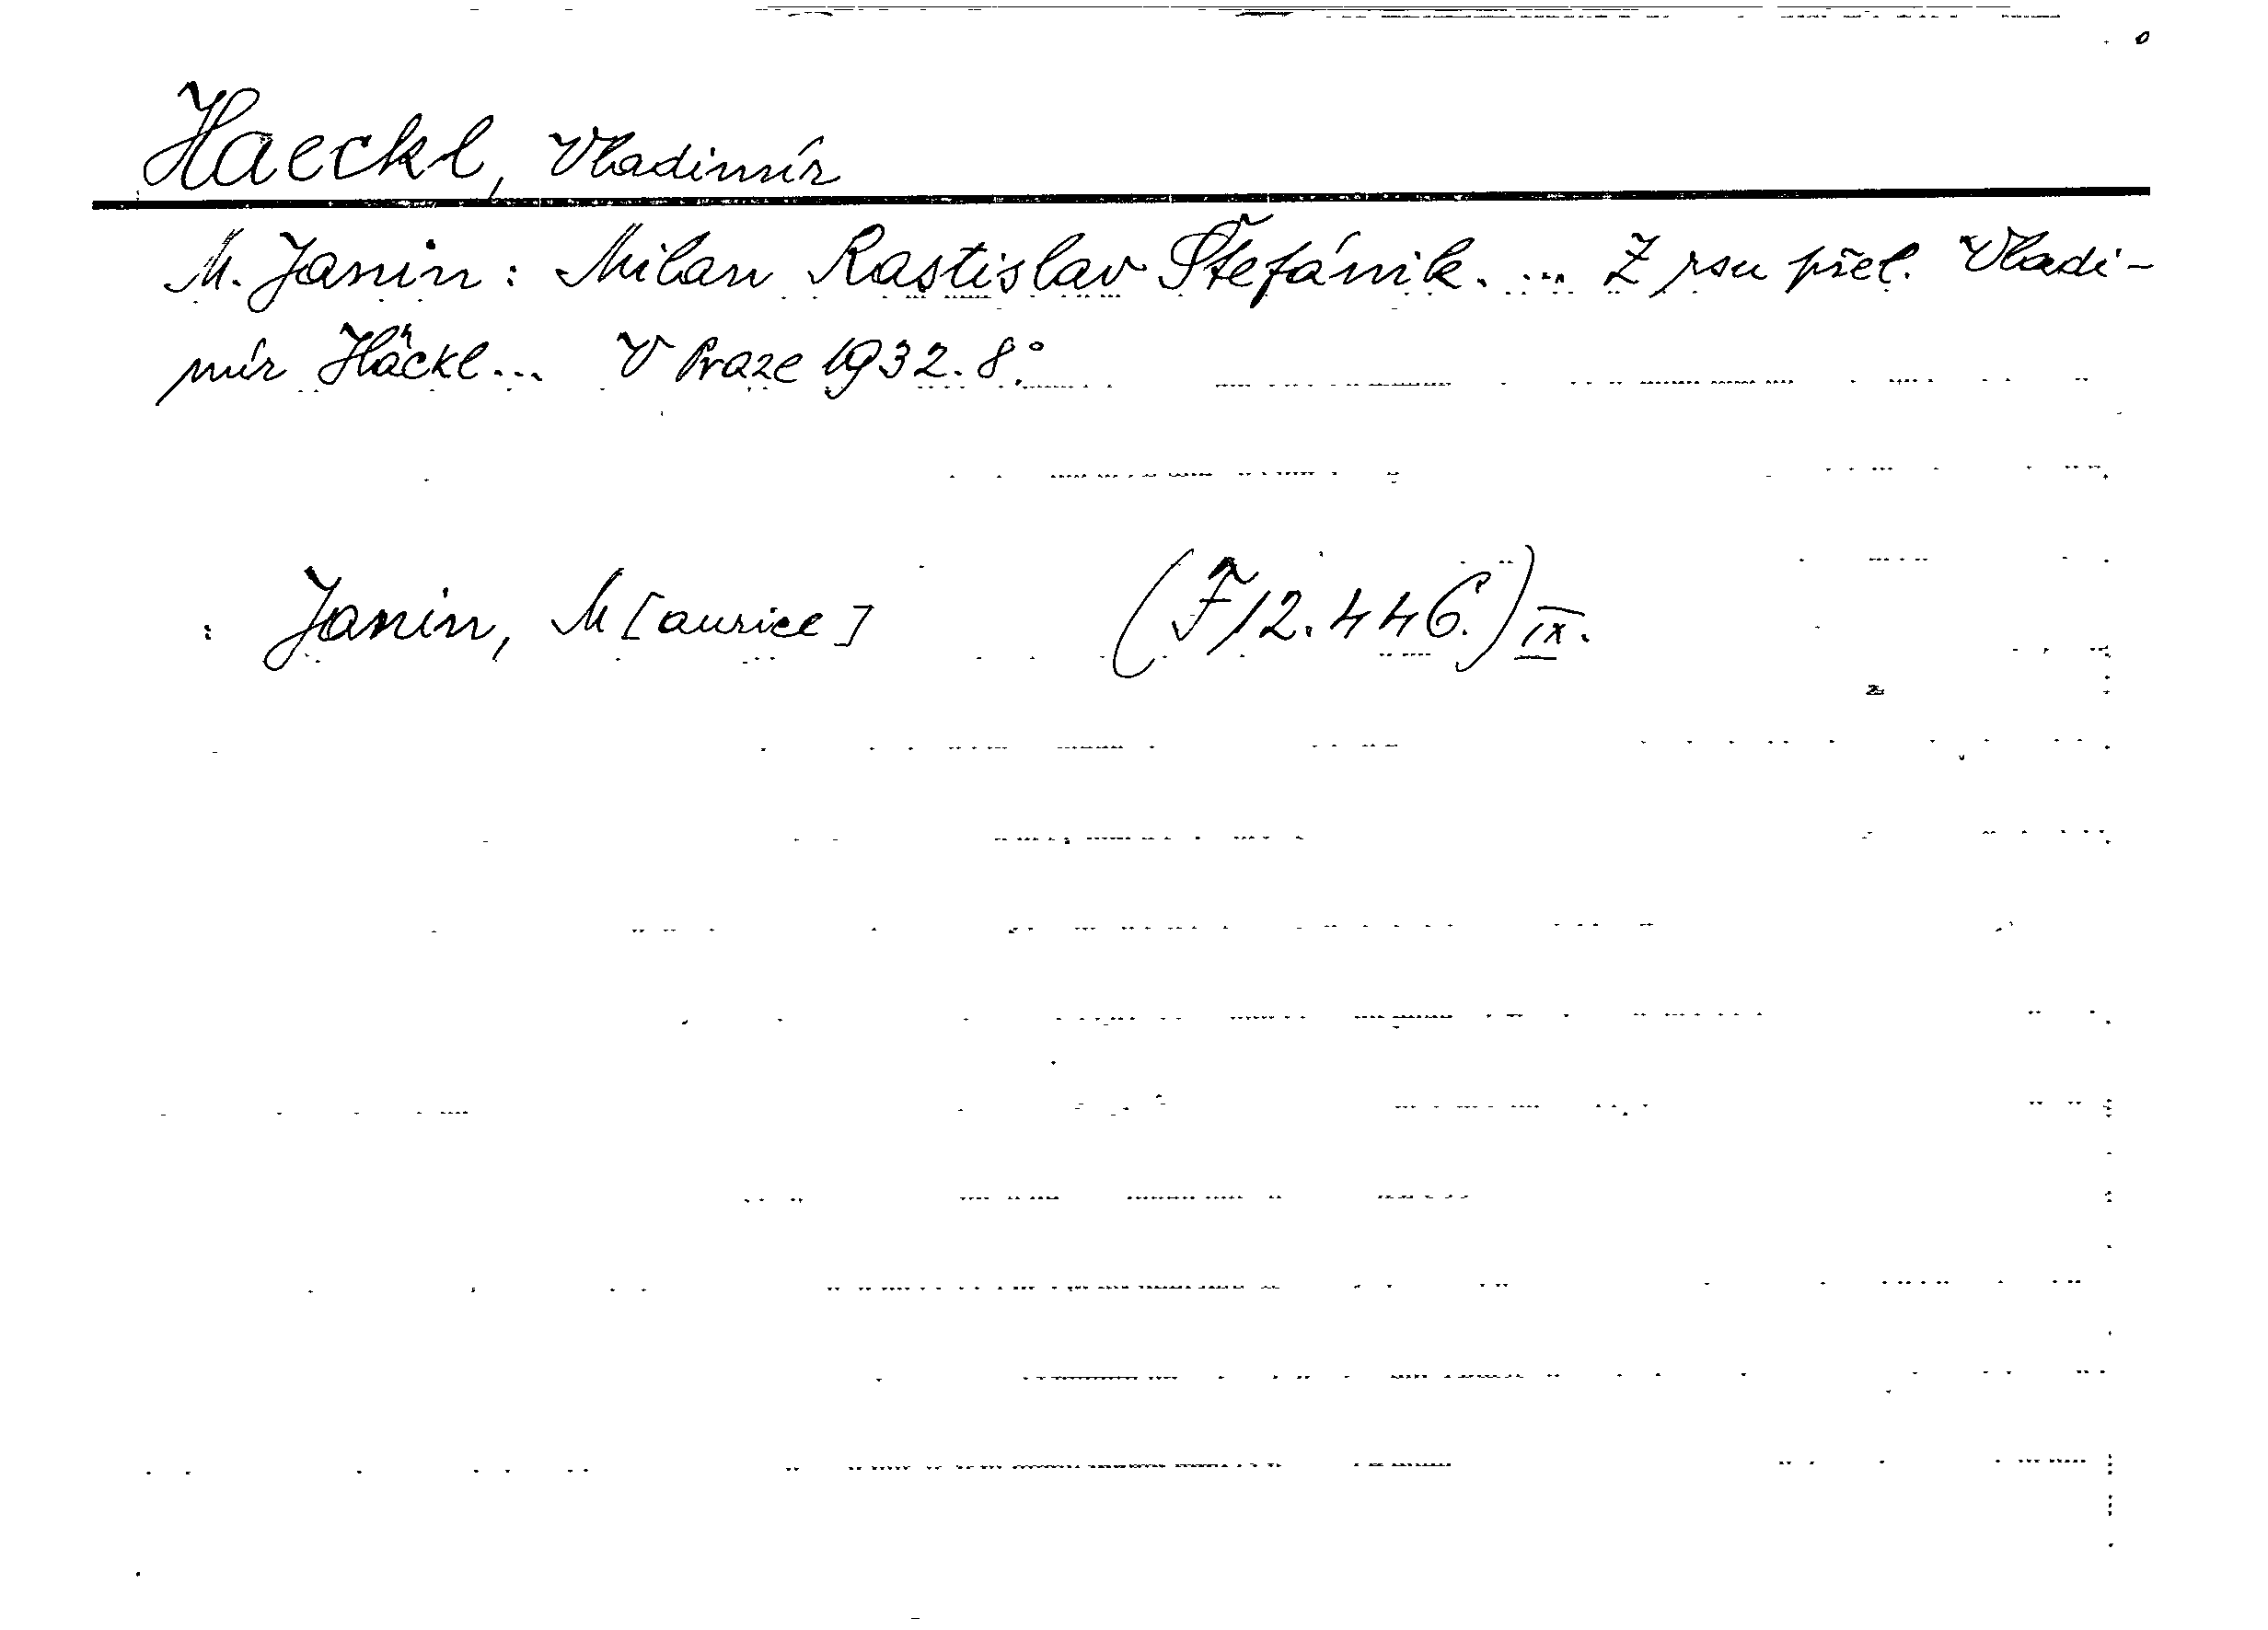 Haeckl, Vladimír
M. Janin: Milan Rastislav Štefánik. ... Z rsu přel. Vladi-
mír Häckl... V Praze 1932. 8°.
: Janin, M[aurice] (F 12.446.) IX.